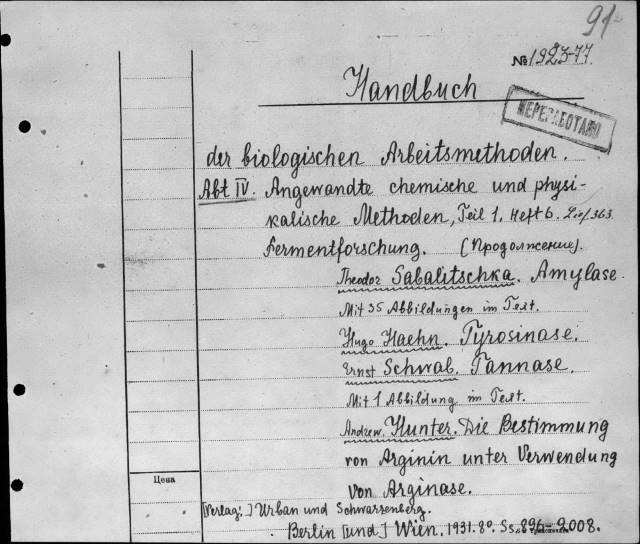 91
№ 1923-77.
Handbuch
ПЕРЕРАБОТАНО
der biologischen Arbeitsmethoden.
Abt IV. Angewandte chemische und physi-
kalische Methoden, Teil 1. Heft 6. Lief. 363.
Fermentforschung. (Продолжение).
Theodor Sabalitschka. Amylase.
Mit 35 Abbildungen im Text.
Hugo Haehn. Tyrosinase.
Ernst Schwab. Tannase.
Mit 1 Abbildung im Text.
Andrew Hunter. Die Bestimmung
von Arginin unter Verwendung
Цена
von Arginase.
[Verlag:] Urban und Schwarzenberg.
Berlin [und] Wien. 1931. 8º. Ss. 896-2008.